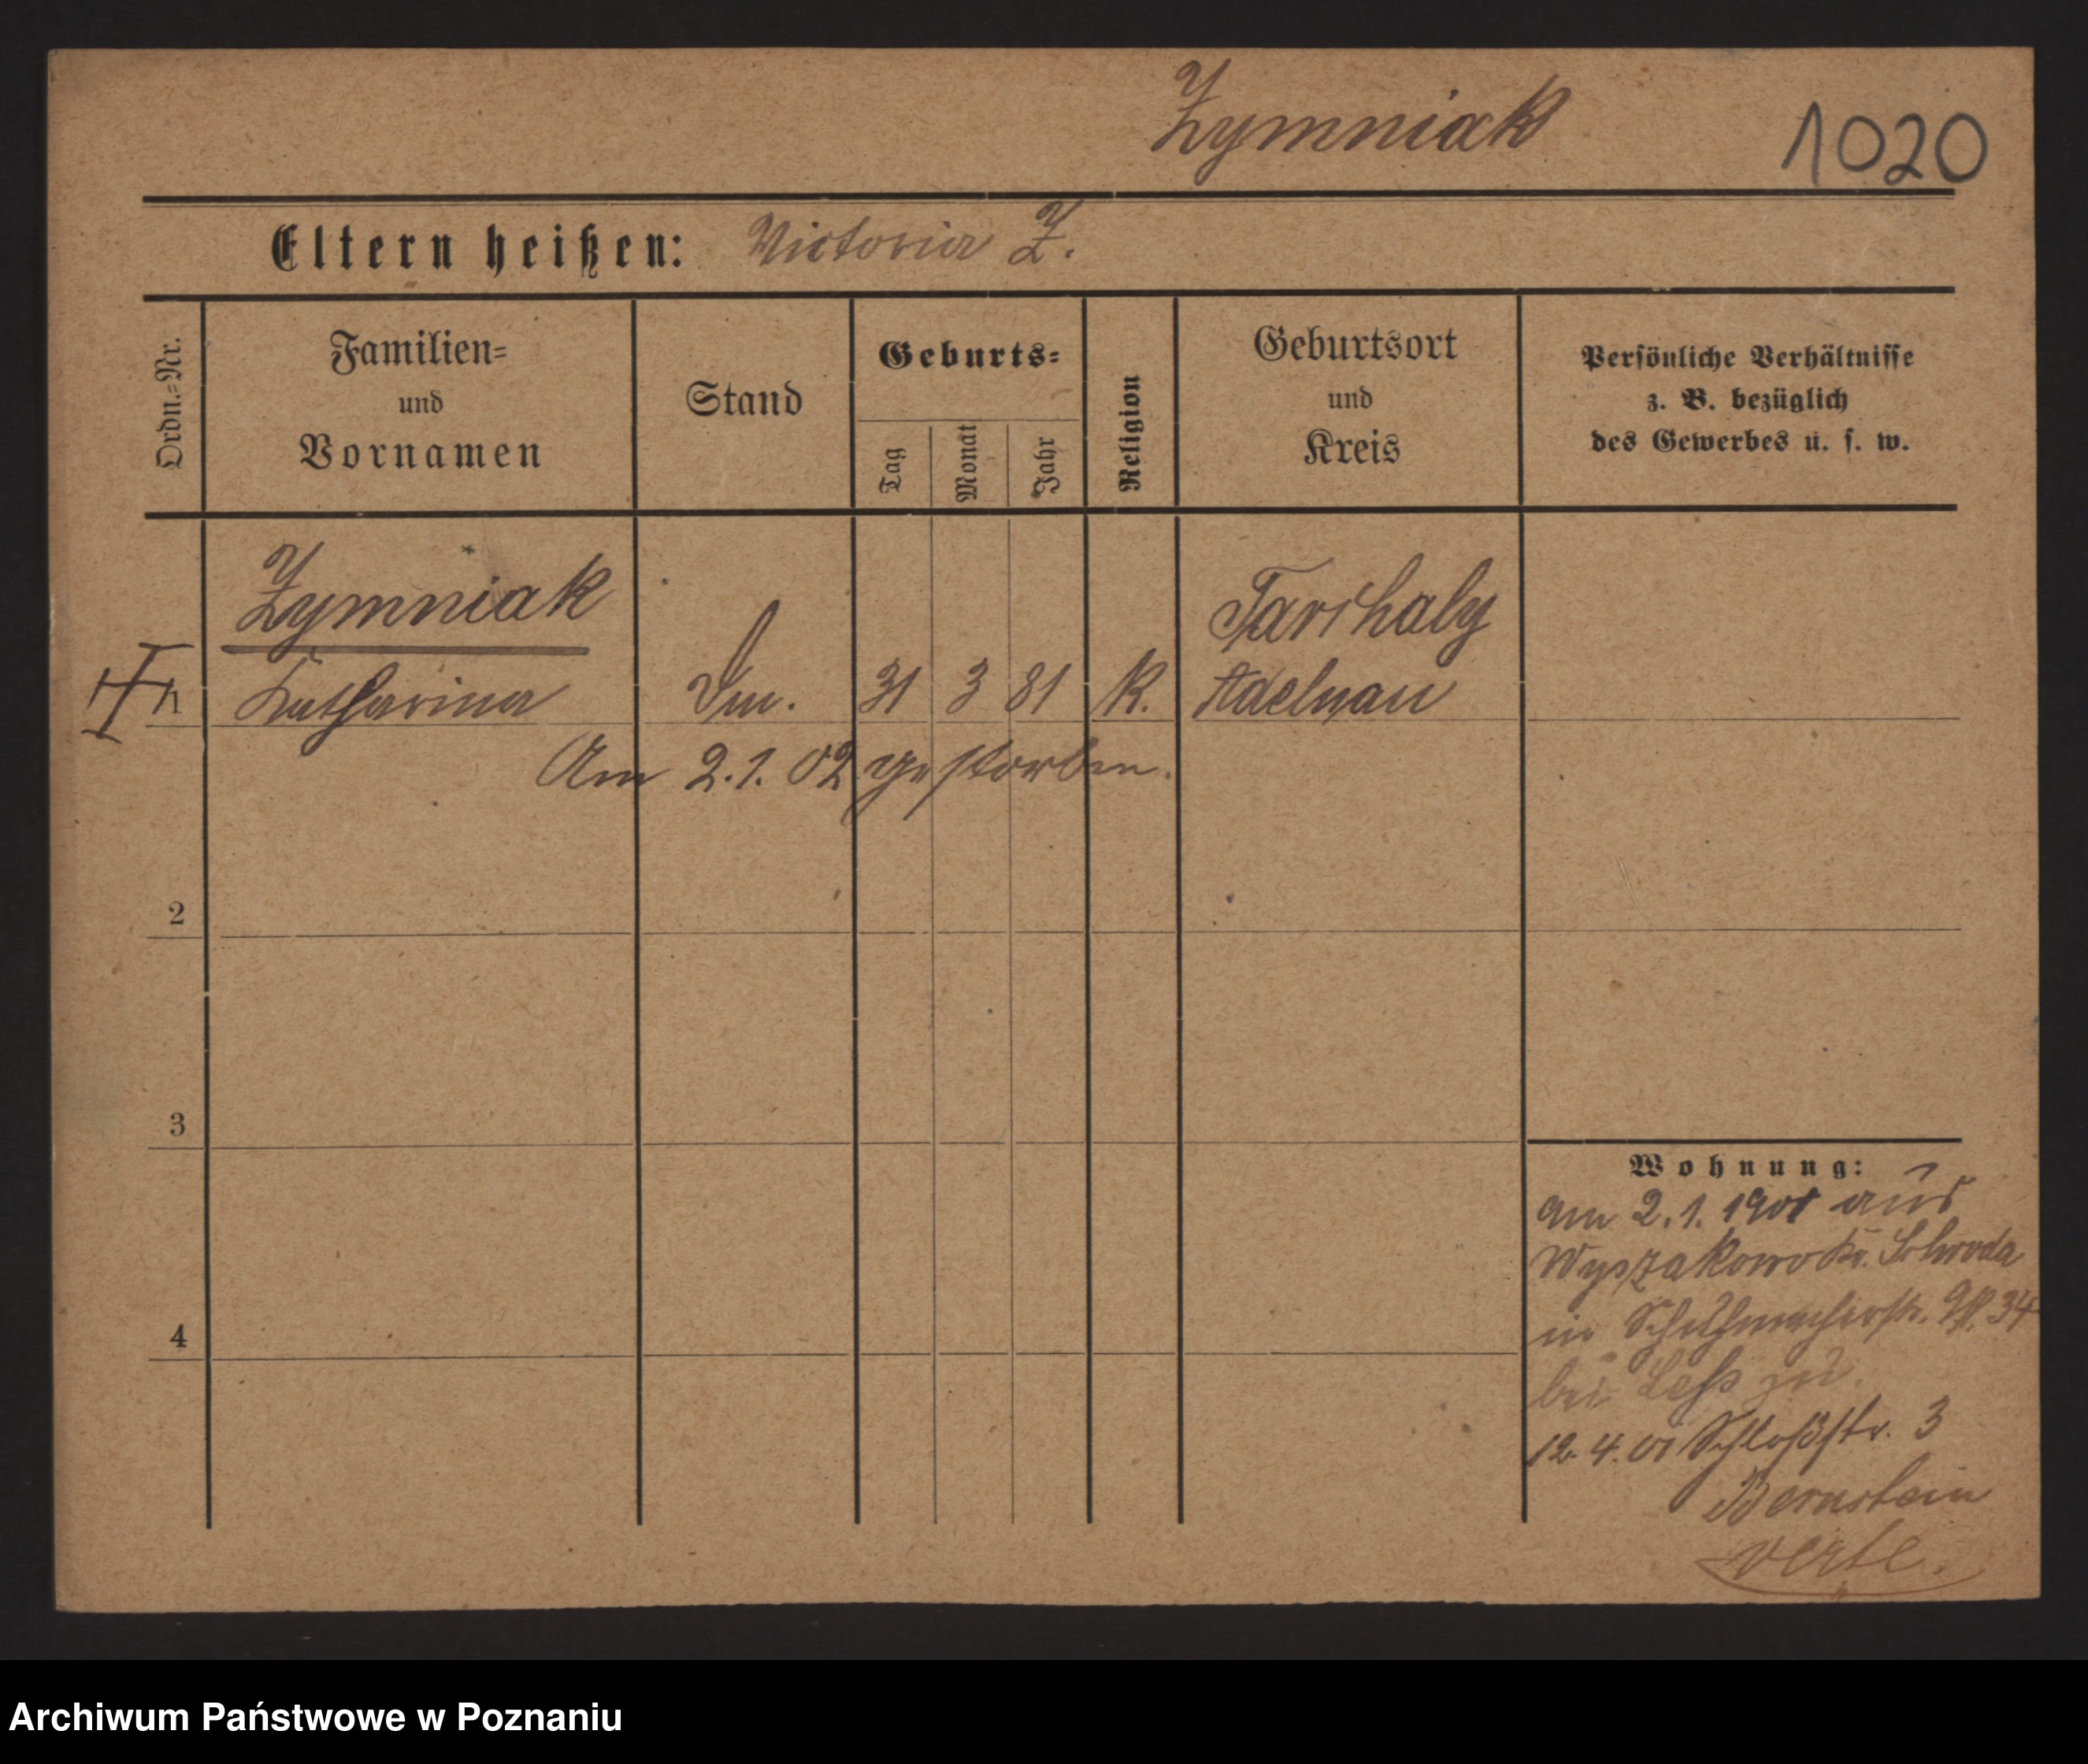 Zymniak
1020
Eltern heißen: Victoria Z.
Ordn.=Nr.
Familien=
und
Vornamen
Stand
Geburts=
Tag
Monat
Jahr
Religion
Geburtsort
und
Kreis
Persönliche Verhältnisse
z. B. bezüglich
des Gewerbes u. s. w.
Zymniak
Tarchaly
Katharina 31 3 81 K. Adelnau
Am 2.1.02 gestorben.
2
3
4
Wohnung:
Am 2.1.1901 aus
Wyszakowo Kr. Schroda
in Schuhmacherstr. 34
bei zu
12.4.01 Schloßstr. 3
Bernstein
verte.
Archiwum Państwowe w Poznaniu